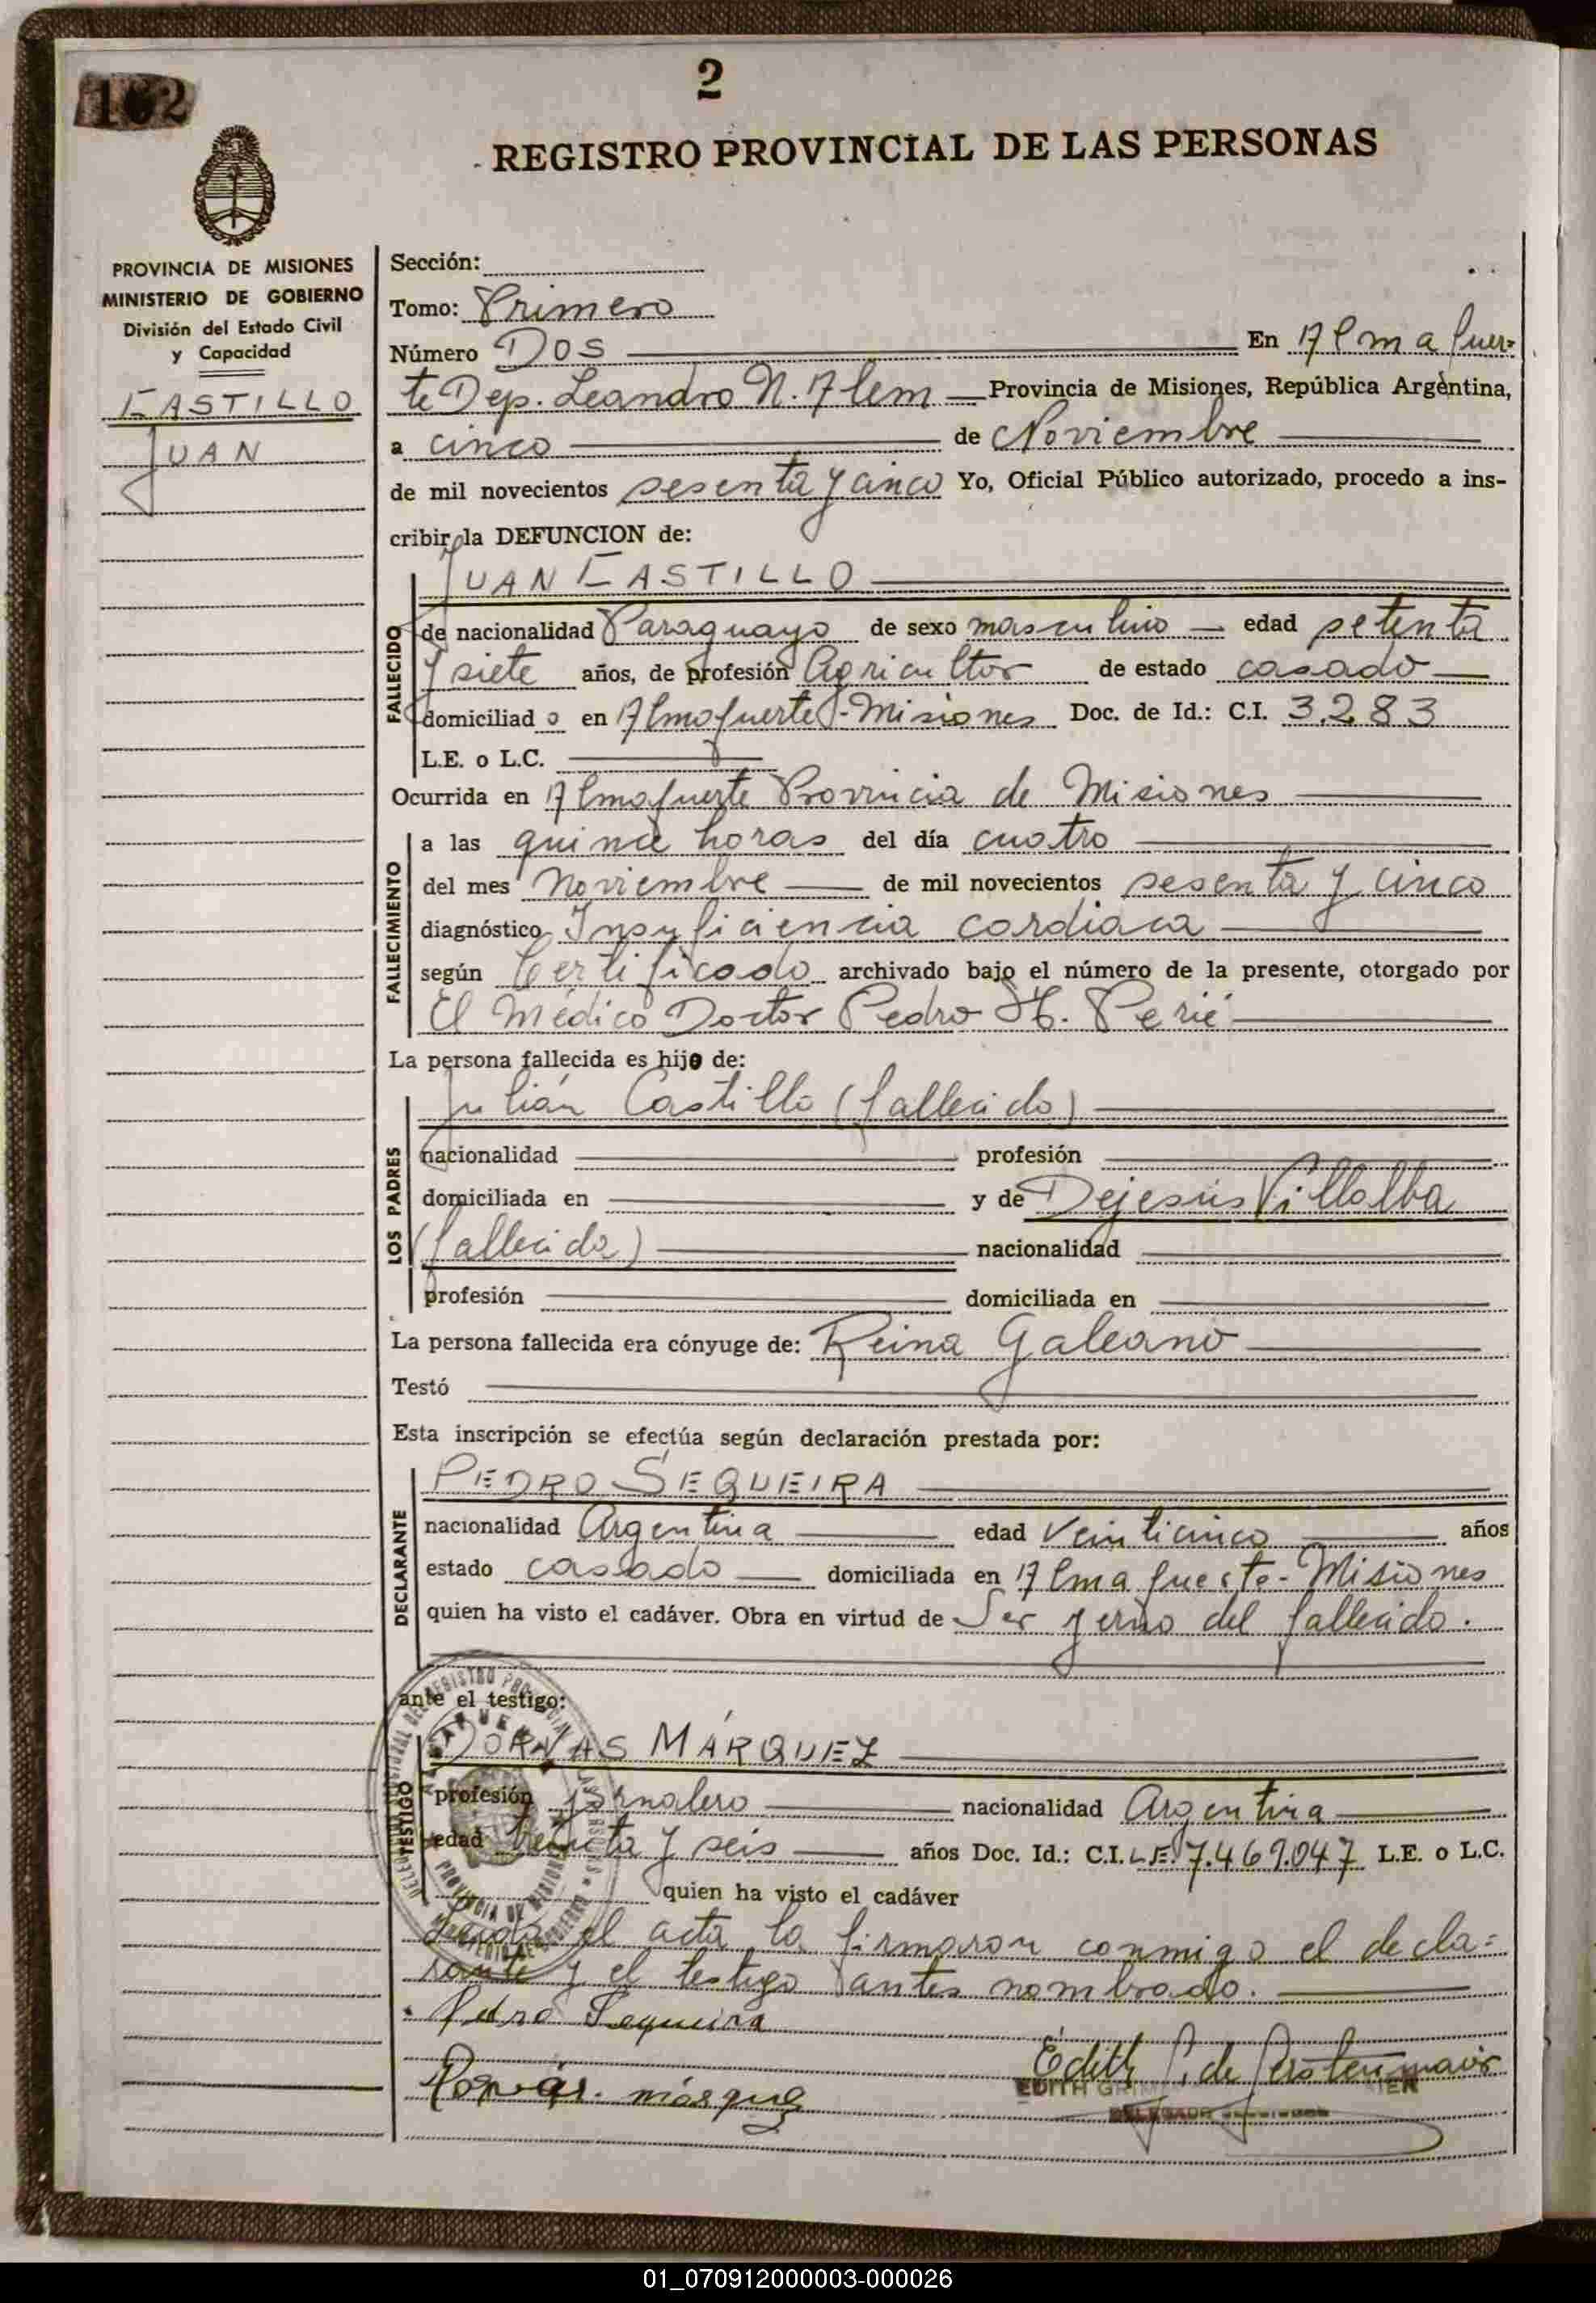 162
2
REGISTRO PROVINCIAL DE LAS PERSONAS
PROVINCIA DE MISIONES
MINISTERIO DE GOBIERNO
División del Estado Civil
y Capacidad
CASTILLO
JUAN
Sección:
Tomo: Primero
Número DOS En Almafuer-
te Dep. Leandro N. Alem Provincia de Misiones, República Argentina,
a cinco de Noviembre
de mil novecientos sesenta y cinco Yo, Oficial Público autorizado, procedo a ins-
cribir la DEFUNCION de:
JUAN CASTILLO
FALLECIDO
de nacionalidad Paraguayo de sexo masculino edad setenta
y siete años, de profesión Agricultor de estado casado
domiciliado en Almafuerte-Misiones Doc. de Id.: C.I. 3.283
L.E. o L.C.
Ocurrida en Almafuerte Provincia de Misiones
FALLECIMIENTO
a las quince horas del día cuatro
del mes Noviembre de mil novecientos sesenta y cinco
diagnóstico Insuficiencia cardiaca
según Certificado archivado bajo el número de la presente, otorgado por
El Médico Doctor Pedro H. Perié
La persona fallecida es hijo de:
LOS PADRES
Julián Castillo (fallecido)
nacionalidad profesión
domiciliada en y de Dejesús Villalba
(fallecida) nacionalidad
profesión domiciliada en
La persona fallecida era cónyuge de: Reina Galeano
Testó
Esta inscripción se efectúa según declaración prestada por:
DECLARANTE
PEDRO SEQUEIRA
nacionalidad Argentina edad Veinticinco años
estado casado domiciliada en Almafuerte-Misiones
quien ha visto el cadáver. Obra en virtud de Ser yerno del fallecido.
ante el testigo:
TESTIGO
MÁRQUEZ
profesión jornalero nacionalidad Argentina
edad treinta y seis años Doc. Id.: C.I. L.E. 7.469.047 L.E. o L.C.
quien ha visto el cadáver
Leída el acta la firmaron conmigo el decla=
rante y el testigo antes nombrado.
Pedro Sequeira
Edith G. de Gerstenmaier
EDITH
01_070912000003-000026